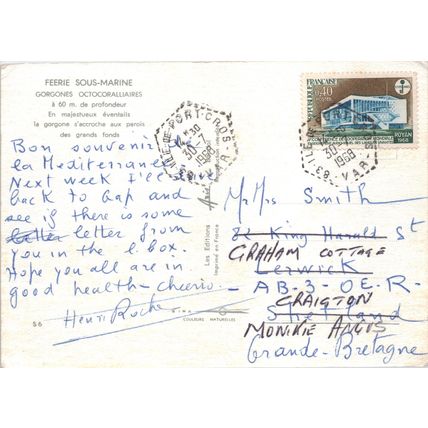 FEERIE SOUS-MARINE
GORGONES OCTOCORALLIAIRES
à 60 m. de profondeur
En majestueux éventails
la gorgone s'accroche aux parois
des grands fonds
Bon souvenir de
la Mediterranée
Next week I'll drive
back to Gap and
see if there is some
letter letter from
you in the l. box.
Hope you all are in
good health - cheerio.
Henri Roche
S 6
Les Editions
Imprimé en France
COULEURS NATURELLES
RÉPUBLIQUE FRANÇAISE
0,40
POSTES
ROYAN
1968
PORT-CROS
30-7
1968
VAR
83 ILE
30-7
1968
VAR
Mr Mrs Smith
22 King Harald St
GRAHAM COTTAGE
Lerwick
AB-3-OE-R-
CRAIGTON
Shetland
MONIKIE ANGUS
Grande-Bretagne